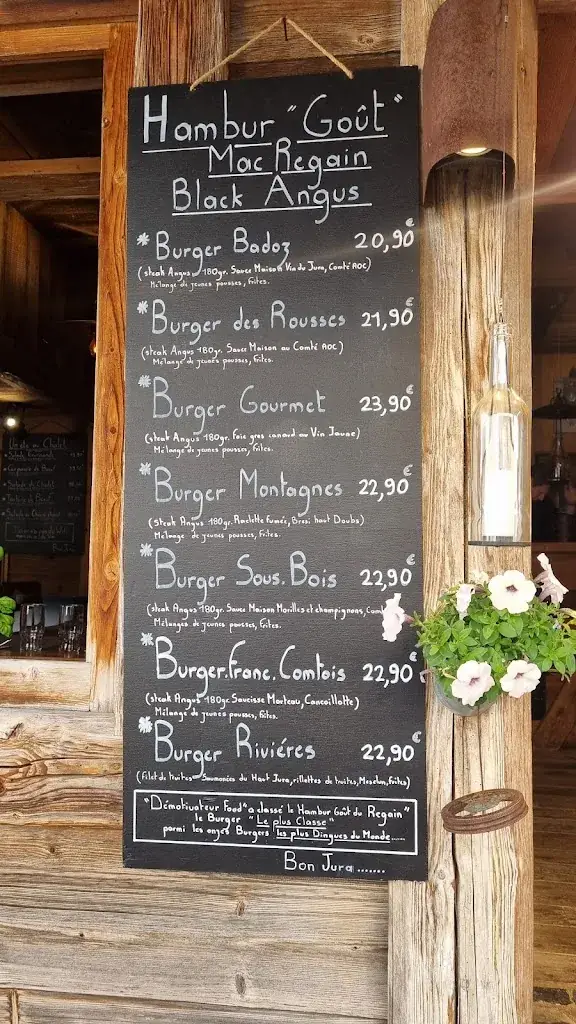 Hambur "Goût"
Mac Regain
Black Angus
* Burger Badoz 20,90€
(steak Angus 180gr. Sauce Maison Vin du Jura, Comté AOC)
Mélange de jeunes pousses, frites.
* Burger des Rousses 21,90€
(steak Angus 180gr. Sauce Maison au Comté AOC)
Mélange de jeunes pousses, frites.
* Burger Gourmet 23,90€
(steak Angus 180gr. Foie gras canard au Vin Jaune)
Mélange de jeunes pousses, frites.
* Burger Montagnes 22,90€
(Steak Angus 180gr. Raclette fumée, Bresi haut Doubs)
Mélange de jeunes pousses, frites.
* Burger Sous.Bois 22,90€
(steak Angus 180gr. Sauce Maison Morilles et champignons,
Mélanges de jeunes pousses, frites.
* Burger.Franc.Comtois 22,90€
(steak Angus 180gr. Saucisse Morteau, Cancoillotte)
Mélange de jeunes pousses, frites.
* Burger Riviéres 22,90€
(filet de truites Saumonées du Haut Jura, rillettes de truites, Mesclun, frites)
"Démotivateur Food" a classé le Hambur Goût du Regain"
le Burger "Le plus Classe"
parmi les onzes Burgers les plus Dingues du Monde.....
Bon Jura.......